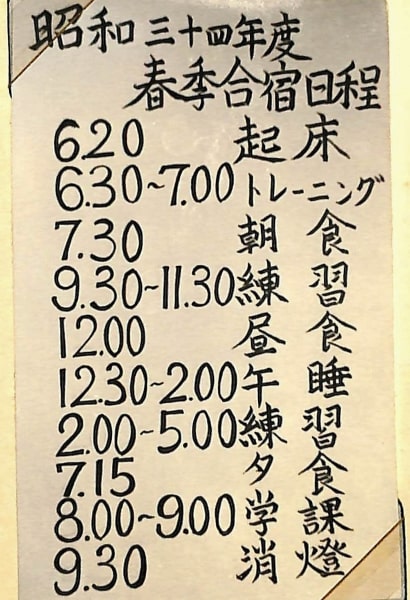 昭和三十四年度
春季合宿日程
6.20 起床
6.30~7.00 トレーニング
7.30 朝食
9.30~11.30 練習
12.00 昼食
12.30~2.00 午睡
2.00~5.00 練習
7.15 夕食
8.00~9.00 学課
9.30 消燈